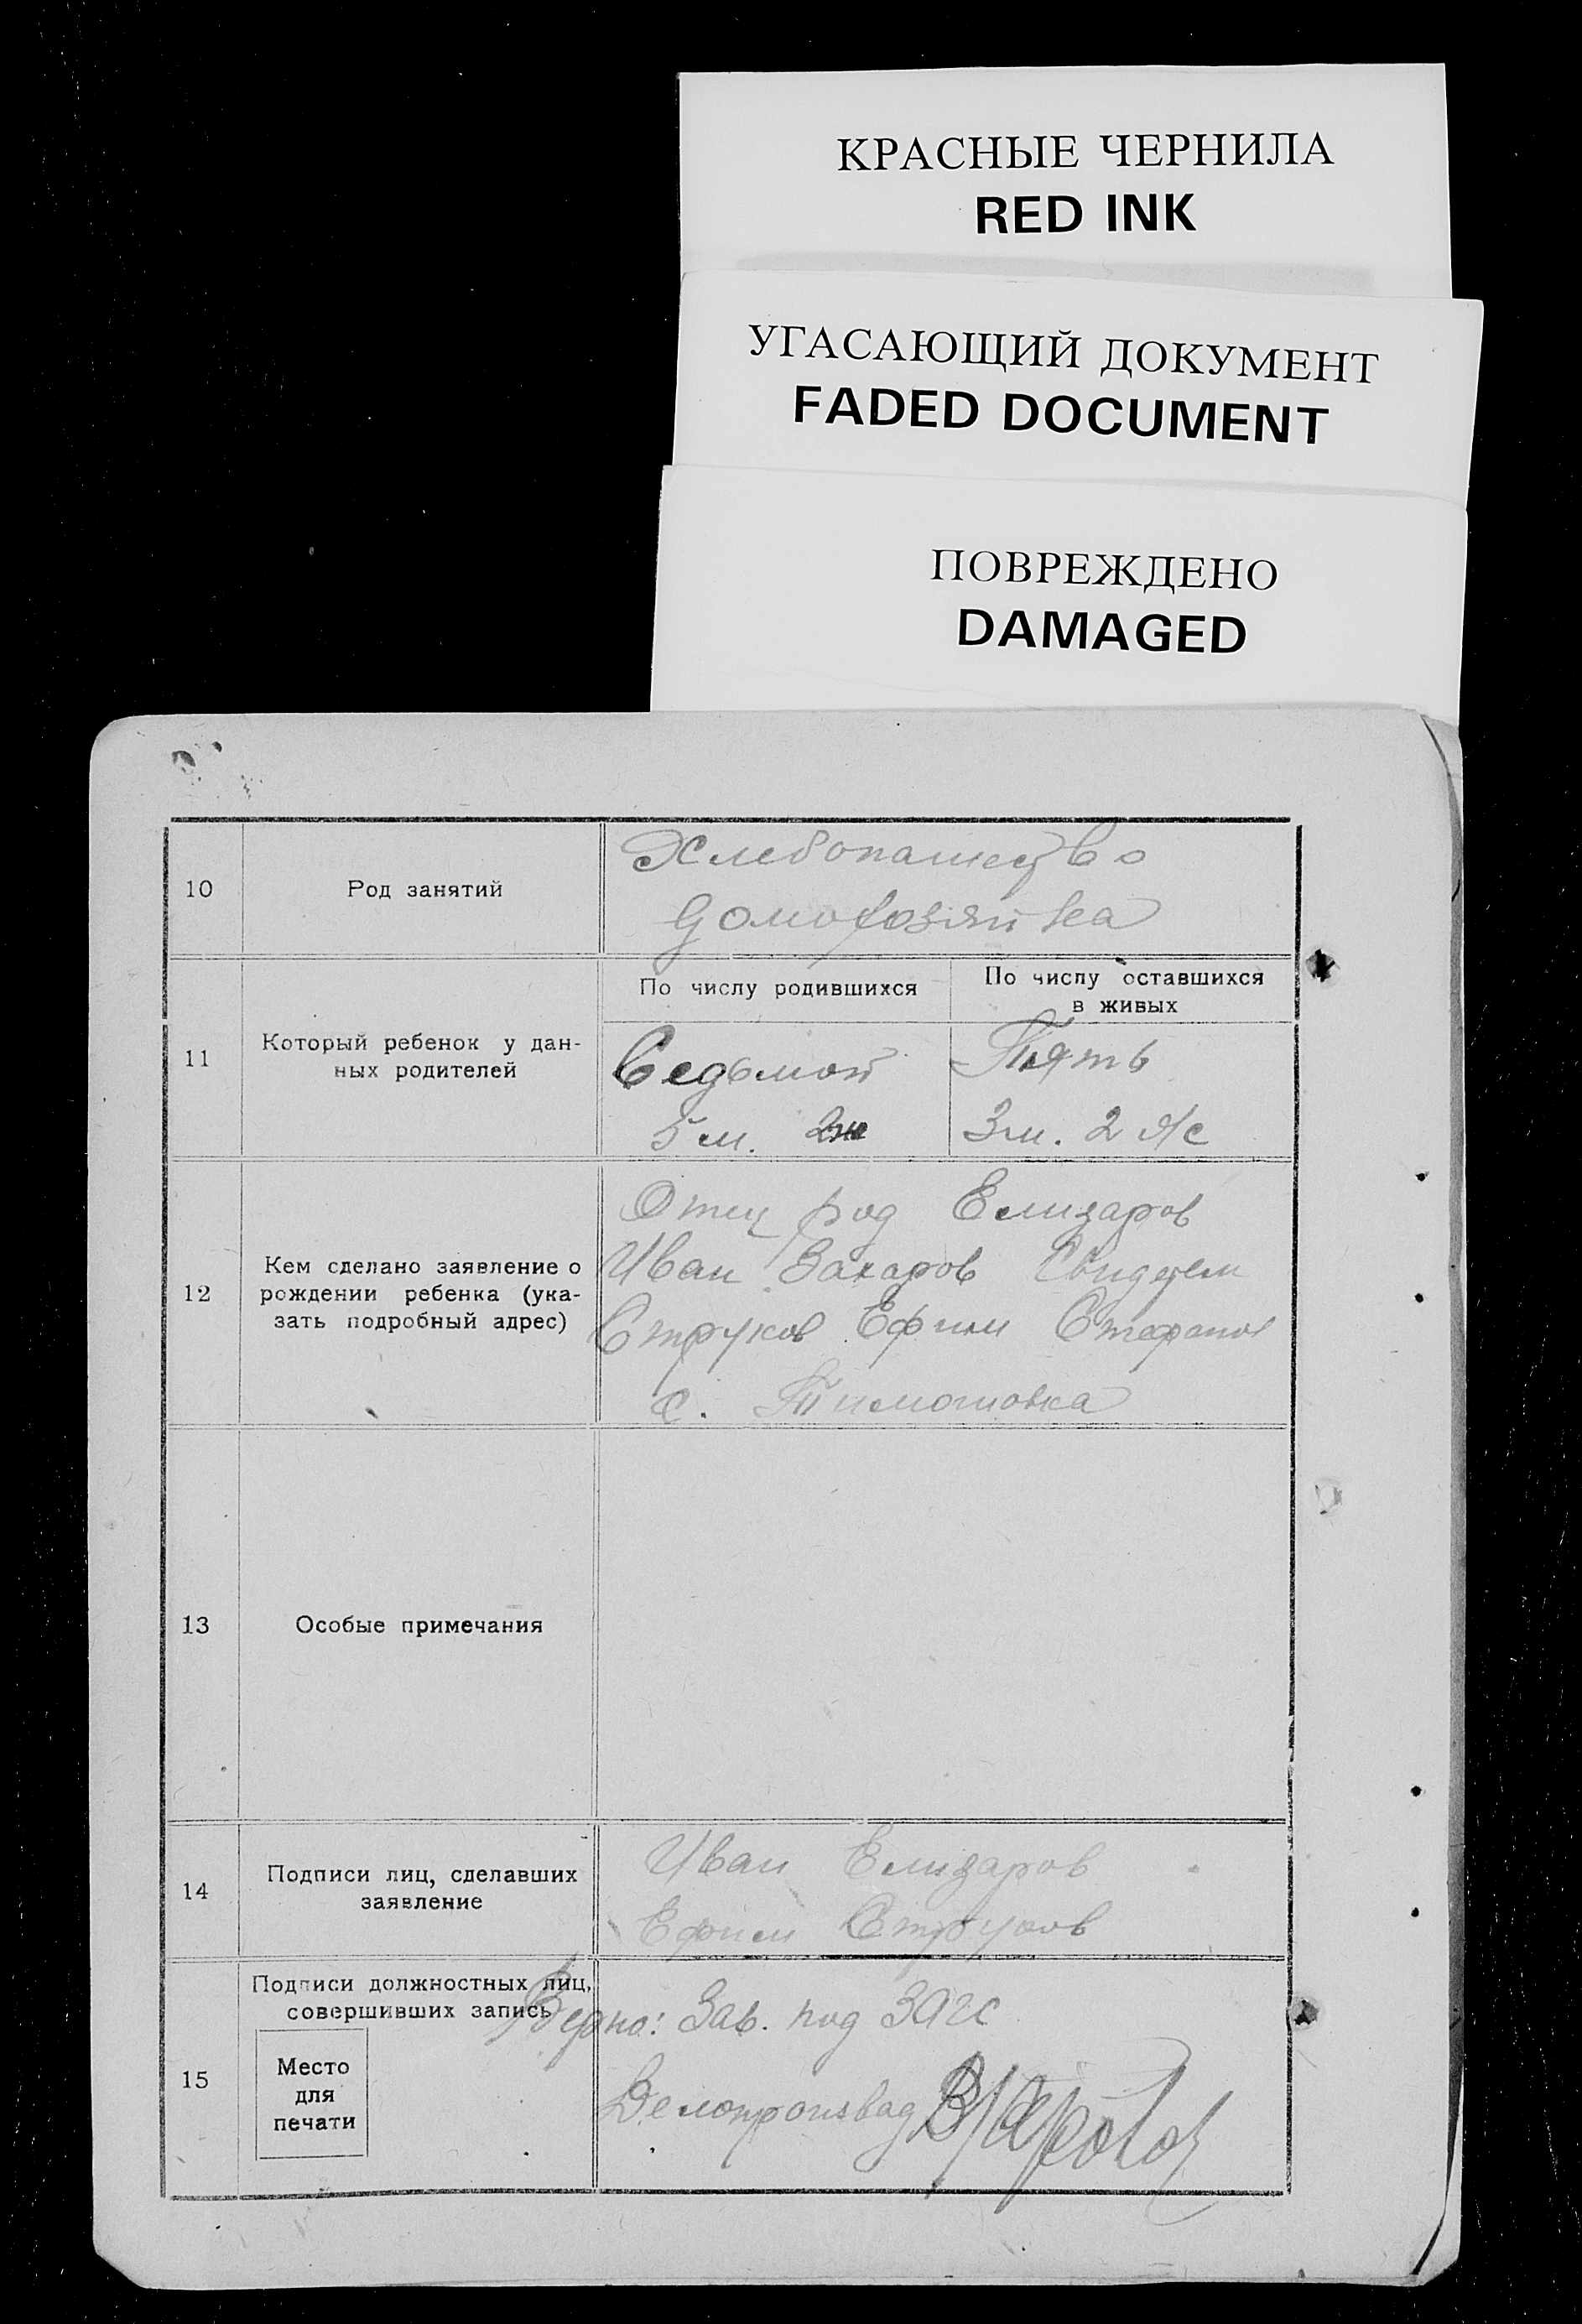 КРАСНЫЕ ЧЕРНИЛА
RED INK
УГАСАЮЩИЙ ДОКУМЕНТ
FADED DOCUMENT
ПОВРЕЖДЕНО
DAMAGED
10
Род занятий
Хлебопашество
домохозяйка
11
Который ребенок у дан-
ных родителей
По числу родившихся
По числу оставшихся
в живых
Седьмой
Пять
5 м. 2ж
3 м. 2 ж
12
Кем сделано заявление о
рождении ребенка (ука-
зать подробный адрес)
Отец род Елизаров
Иван Захаров Свидетели
Струков Ефим Стефанов
с. Тимошовка
13
Особые примечания
14
Подписи лиц, сделавших
заявление
Иван Елизаров
Ефим Струков
15
Подписи должностных лиц,
совершивших запись
Место
для
печати
Верно: Зав. под ЗАГС
Делопроизвод